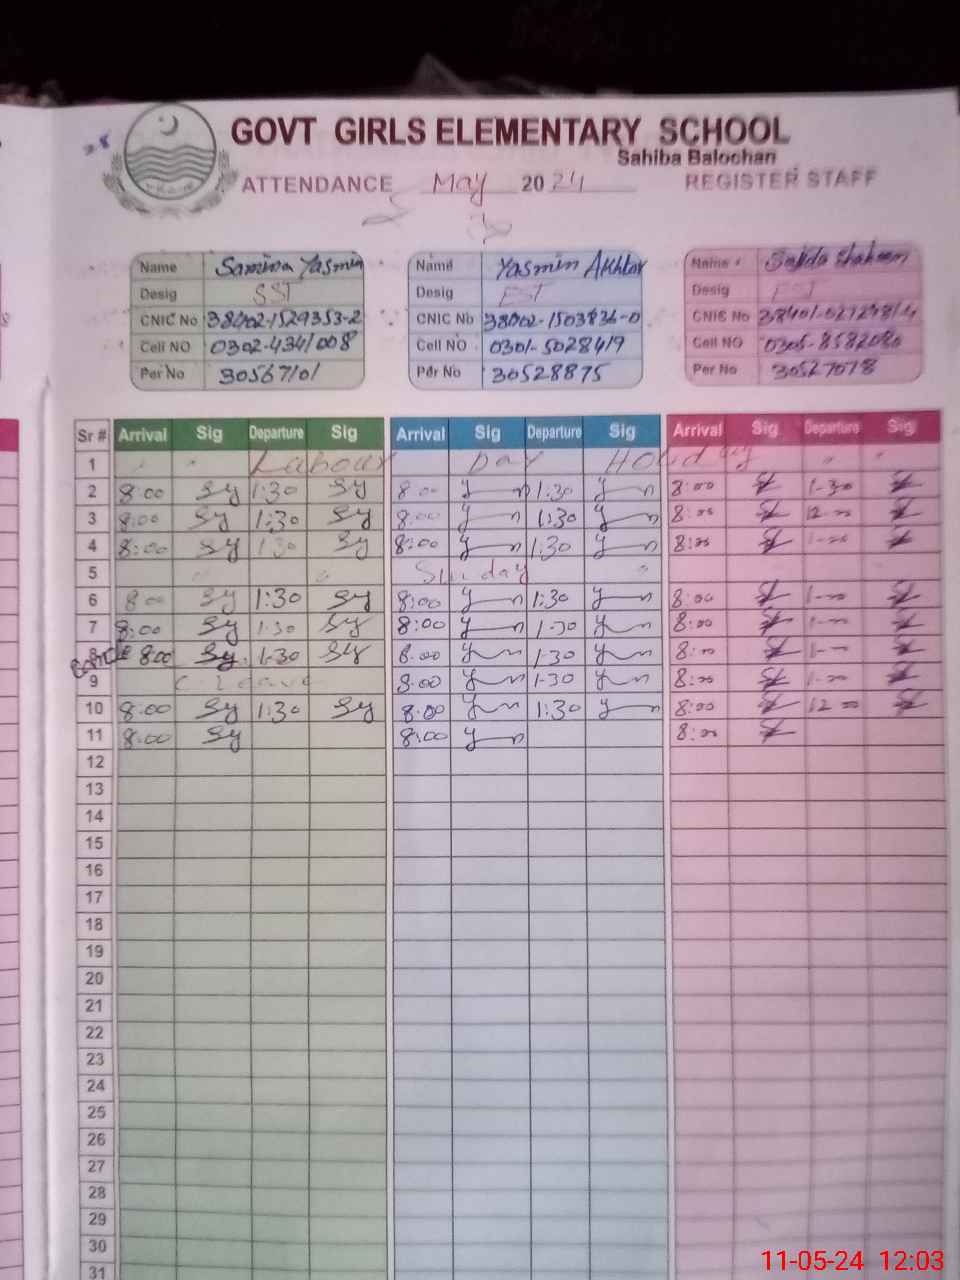 GOVT GIRLS ELEMENTARY SCHOOL
Sahiba Balochan
ATTENDANCE May 2024 REGISTER STAFF
Name Samina Yasmin Name Yasmin Akhtar Name Sajida Shaheen
Desig SST Desig EST Desig
CNIC No 38402-1529353-2 CNIC No 38402-1503836-0 CNIC No
Cell NO 0302-4341008 Cell NO 0301-5028419 Cell NO 0305-8582080
Per No 30567101 Per No 30528875 Per No 30527078
Sr # Arrival Sig Departure Sig Arrival Sig Departure Sig Arrival Sig Departure Sig
1 Labour Day Holiday
2 8:00 Sy 1:30 Sy 8:00 1:30 8:00 1-30
3 8:00 Sy 1:30 Sy 8:00 1:30 8:00 12-00
4 8:00 Sy 1:30 Sy 8:00 1:30 8:00 1-00
5 Sunday
6 8:00 Sy 1:30 Sy 8:00 1:30 8:00 1-00
7 8:00 Sy 1:30 Sy 8:00 1-30 8:00 1-00
8 8:00 Sy 1-30 Sy 8:00 1-30 8:00 1-00
9 C/Leave 8:00 1-30 8:00 1-00
10 8:00 Sy 1:30 Sy 8:00 1:30 8:00 12-00
11 8:00 Sy 8:00 8:00
12
13
14
15
16
17
18
19
20
21
22
23
24
25
26
27
28
29
30
31
11-05-24 12:03